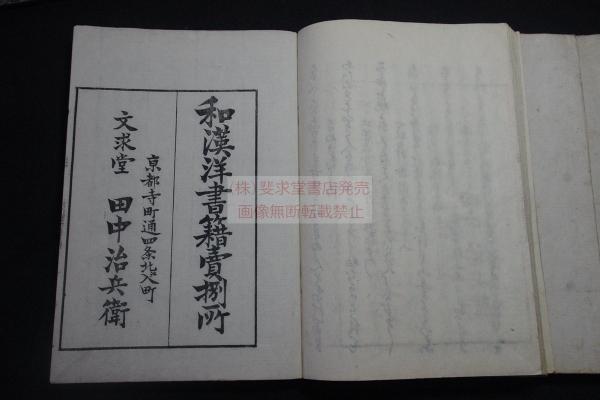 和漢洋書籍賣捌所
京都寺町通四条北入町
文求堂 田中治兵衛
(株)斐求堂書店発売
画像無断転載禁止